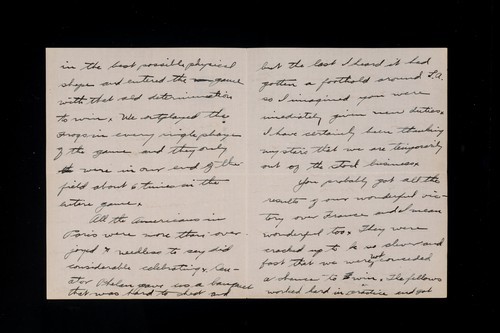 in the best possible physical
shape and entered the game
with that old determination
to win. We outplayed the
frogs in every single phase
of the game and they only
were in our end of the
field about 6 times in the
entire game.
All the Americans in
Paris were more than over
joyed & needless to say did
considerable celebrating.
Phelan gave us a banquet
that was hard to beat and
but the last I heard it had
gotten a foothold around L.A.
so I imagined you were
imediately given new duties.
I have certainly been thanking
my stars that we are temporarily
out of the stock business.
You probably got all the
results of our wonderful vic-
tory over France and I mean
wonderful too. They were
cracked up to be so clever and
fast that we were not conceeded
a chance to win. The fellows
worked hard in practice and got